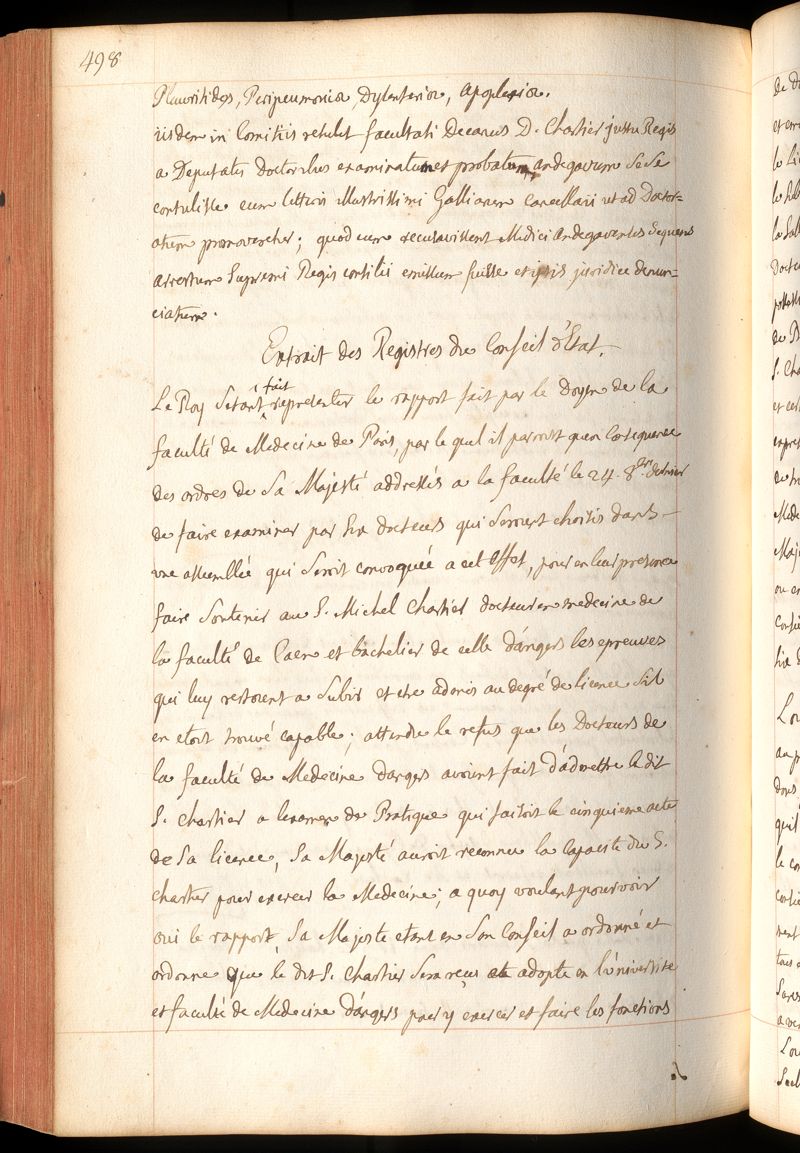 498
Pleuritides, Peripneumonia, Dysenteria, apoplexia.
iisdem in Comitiis retulit facultati Decanus D. Chartier jussu Regis
a Deputatis Doctoribus examinatum et probatum andegavum Se Se
contulisse cum litteris illustrissimi Galliarum Cancellarii ut ad Doctor=
atum promoveretur; quod cum recusavissent Medici andegavenses Sequens
arrestum Supremi Regis consilii emissum fuisse et ipsis juridice denun=
ciatum.
Extrait des Registres du Conseil d'Etat.
Le Roy Setant fait representer le rapport fait par le Doyen de la
faculté de Medecine de Paris, par le quel il paroist quen Consequence
des ordres de Sa Majesté addressés a la faculté le 24. 8bre dernier
de faire examiner par Six docteurs qui Seroient choisis dans
une assemblée qui Seroit convoquée a cet effet, pour en leur presence
faire Soutenir au S. Michel Chartier docteur en medecine de
la faculté de Caen et bachelier de celle d'angers les epreuves
qui luy restoient a Subir et etre admis au degré de licence Sil
en etoit trouvé capable; attendu le refus que les Docteurs de
la faculté de Medecine dangers avoient fait d'admettre le dit
S. Chartier a lexamen de Pratique qui faisoit le cinquieme acte
de Sa licence, Sa Majesté auroit reconnu la capacité du S.
chartier pour exercer la Medecine; a quoy voulant pourvoir
oui le rapport, Sa Majesté etant en Son Conseil a ordonné et
ordonne que le dit S. Chartier Sera reçu et adopté en l'université
et faculté de Medecine d'angers pour y exercer et faire les fonctions